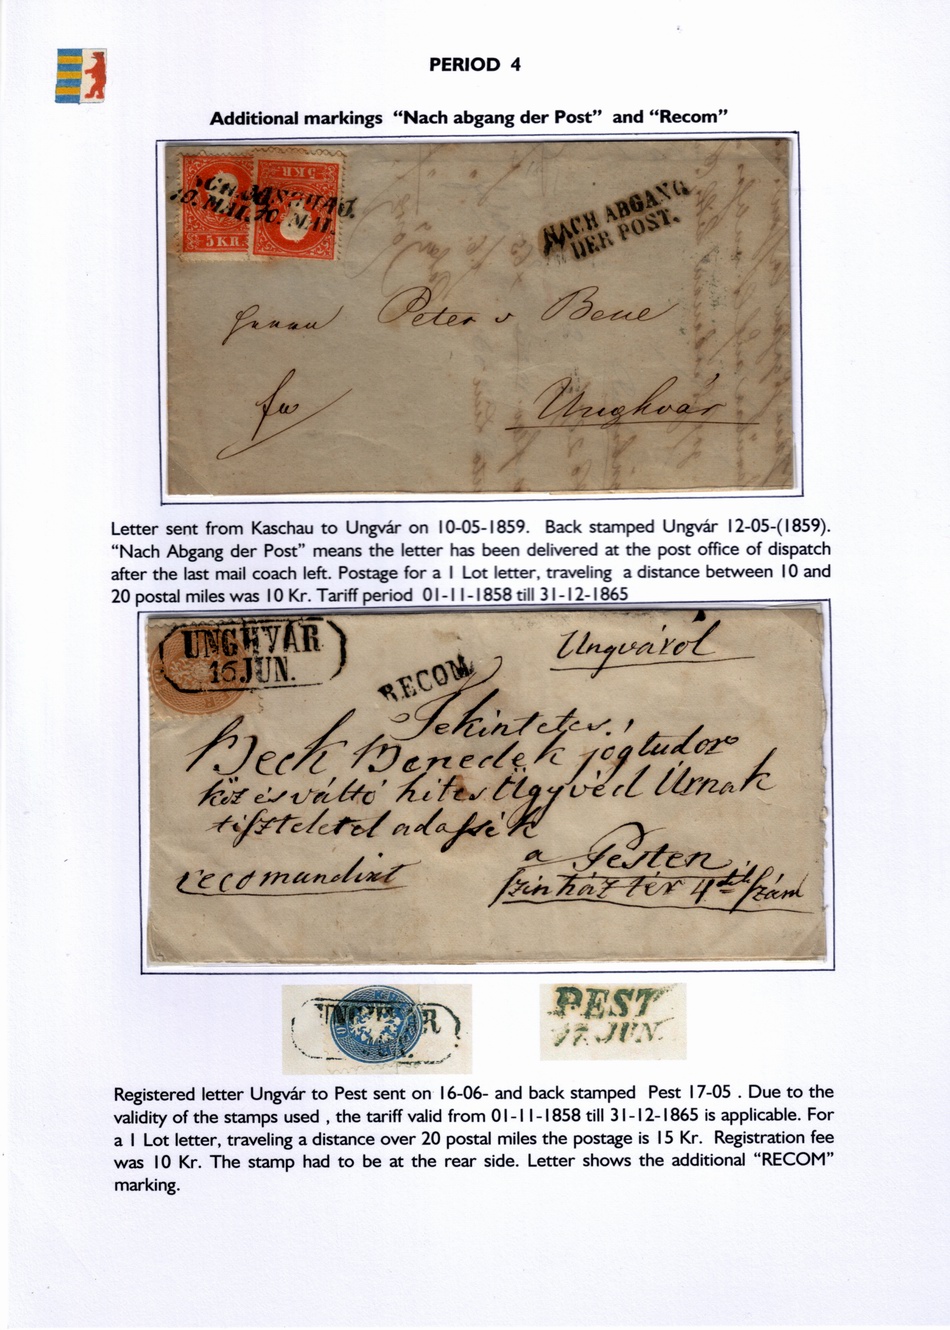 PERIOD 4
Additional markings “Nach abgang der Post” and “Recom”
10. MAI. 10. MAI.
5 KR.
5 KR
NACH ABGANG
DER POST.
Herrn Peter v Bene
fro
Unghvár
Letter sent from Kaschau to Ungvár on 10-05-1859. Back stamped Ungvár 12-05-(1859).
“Nach Abgang der Post” means the letter has been delivered at the post office of dispatch
after the last mail coach left. Postage for a 1 Lot letter, traveling a distance between 10 and
20 postal miles was 10 Kr. Tariff period 01-11-1858 till 31-12-1865
UNGHVÁR
16 JUN.
RECOM
Ungvárol
Tekintetes!
Beck Benedek jogtudor
köz és váltó hites Ügyvéd Úrnak
tisztelettel adassék
a Pesten
recomandirt
szinház tér 4dik szám
PEST
17. JUN.
Registered letter Ungvár to Pest sent on 16-06- and back stamped Pest 17-05 . Due to the
validity of the stamps used , the tariff valid from 01-11-1858 till 31-12-1865 is applicable. For
a 1 Lot letter, traveling a distance over 20 postal miles the postage is 15 Kr. Registration fee
was 10 Kr. The stamp had to be at the rear side. Letter shows the additional “RECOM”
marking.